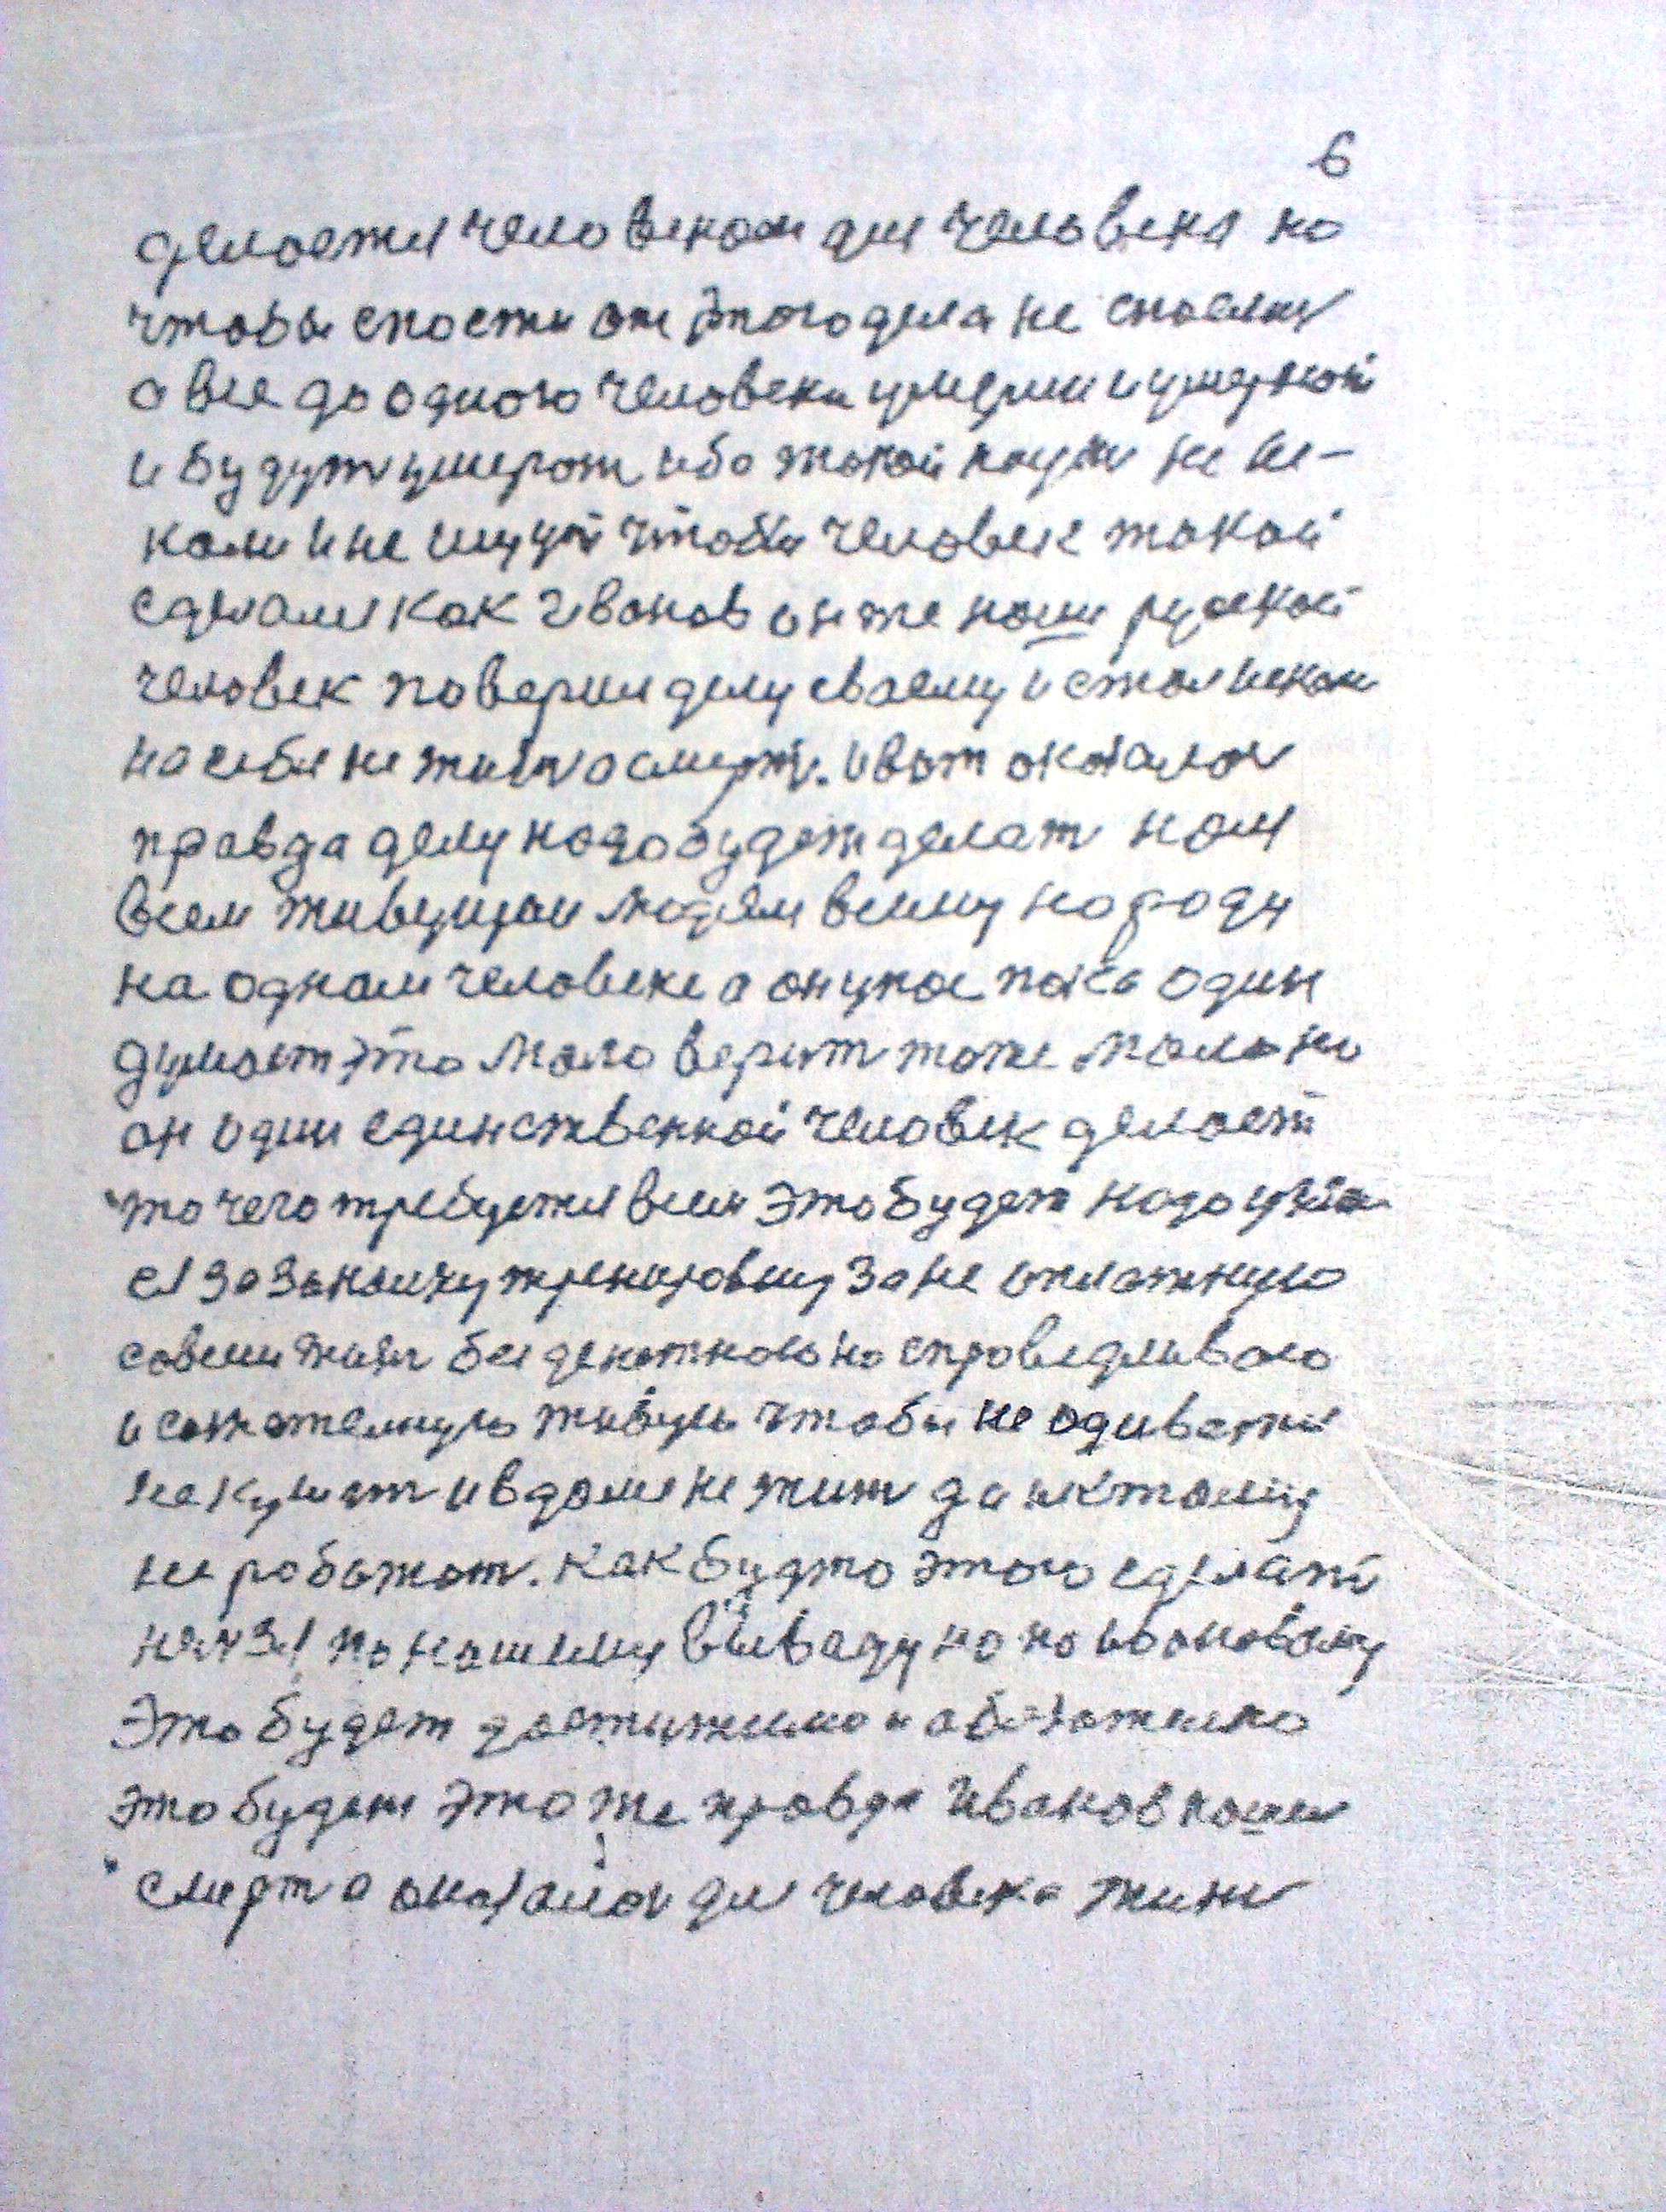 6
делается человеком для человека но
чтобы спости от этого дела не спослись
а все до одного человека умерли и умерают
и будут умерат ибо такой науки не ис-
кали и не ищут чтобы человек такой
сделался как Иванов он же наш руской
человек поверил делу своему и стал искат
на себе не жизн а смерт. И вот оказалос
правда делу надо будет делат нам
всем живущим людям всему народу
на одном человеке а он у нас пака один
думает это мало верит тоже мало но
он один единственной человек делает
то чего требуется всем это будет надо учит
ся за закалку тренировку за не
совсем жизн но справедливаго
и живую чтобы не одиватся
не кушат и в доме не жит да и к тому
не работат. Как будто этого сделат
нелзя по нашему вываду но по Ивановаму
Это будет достижимо и обязателно
это будет это же правда Иванов наши
смерт а оказалос для человека жизн